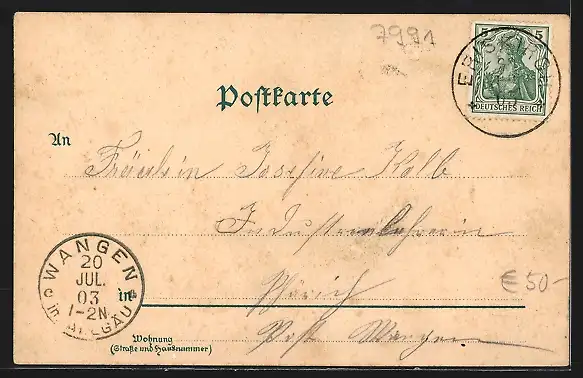 7991
5 5
DEUTSCHES REICH
Postkarte
An
Fräulein Josefine Kolb
Industrielehrerin
WANGEN
20
JUL.
03
1-2N.
in ALLGÄU
in
€ 50-
Post Wangen
Wohnung
(Straße und Hausnummer)